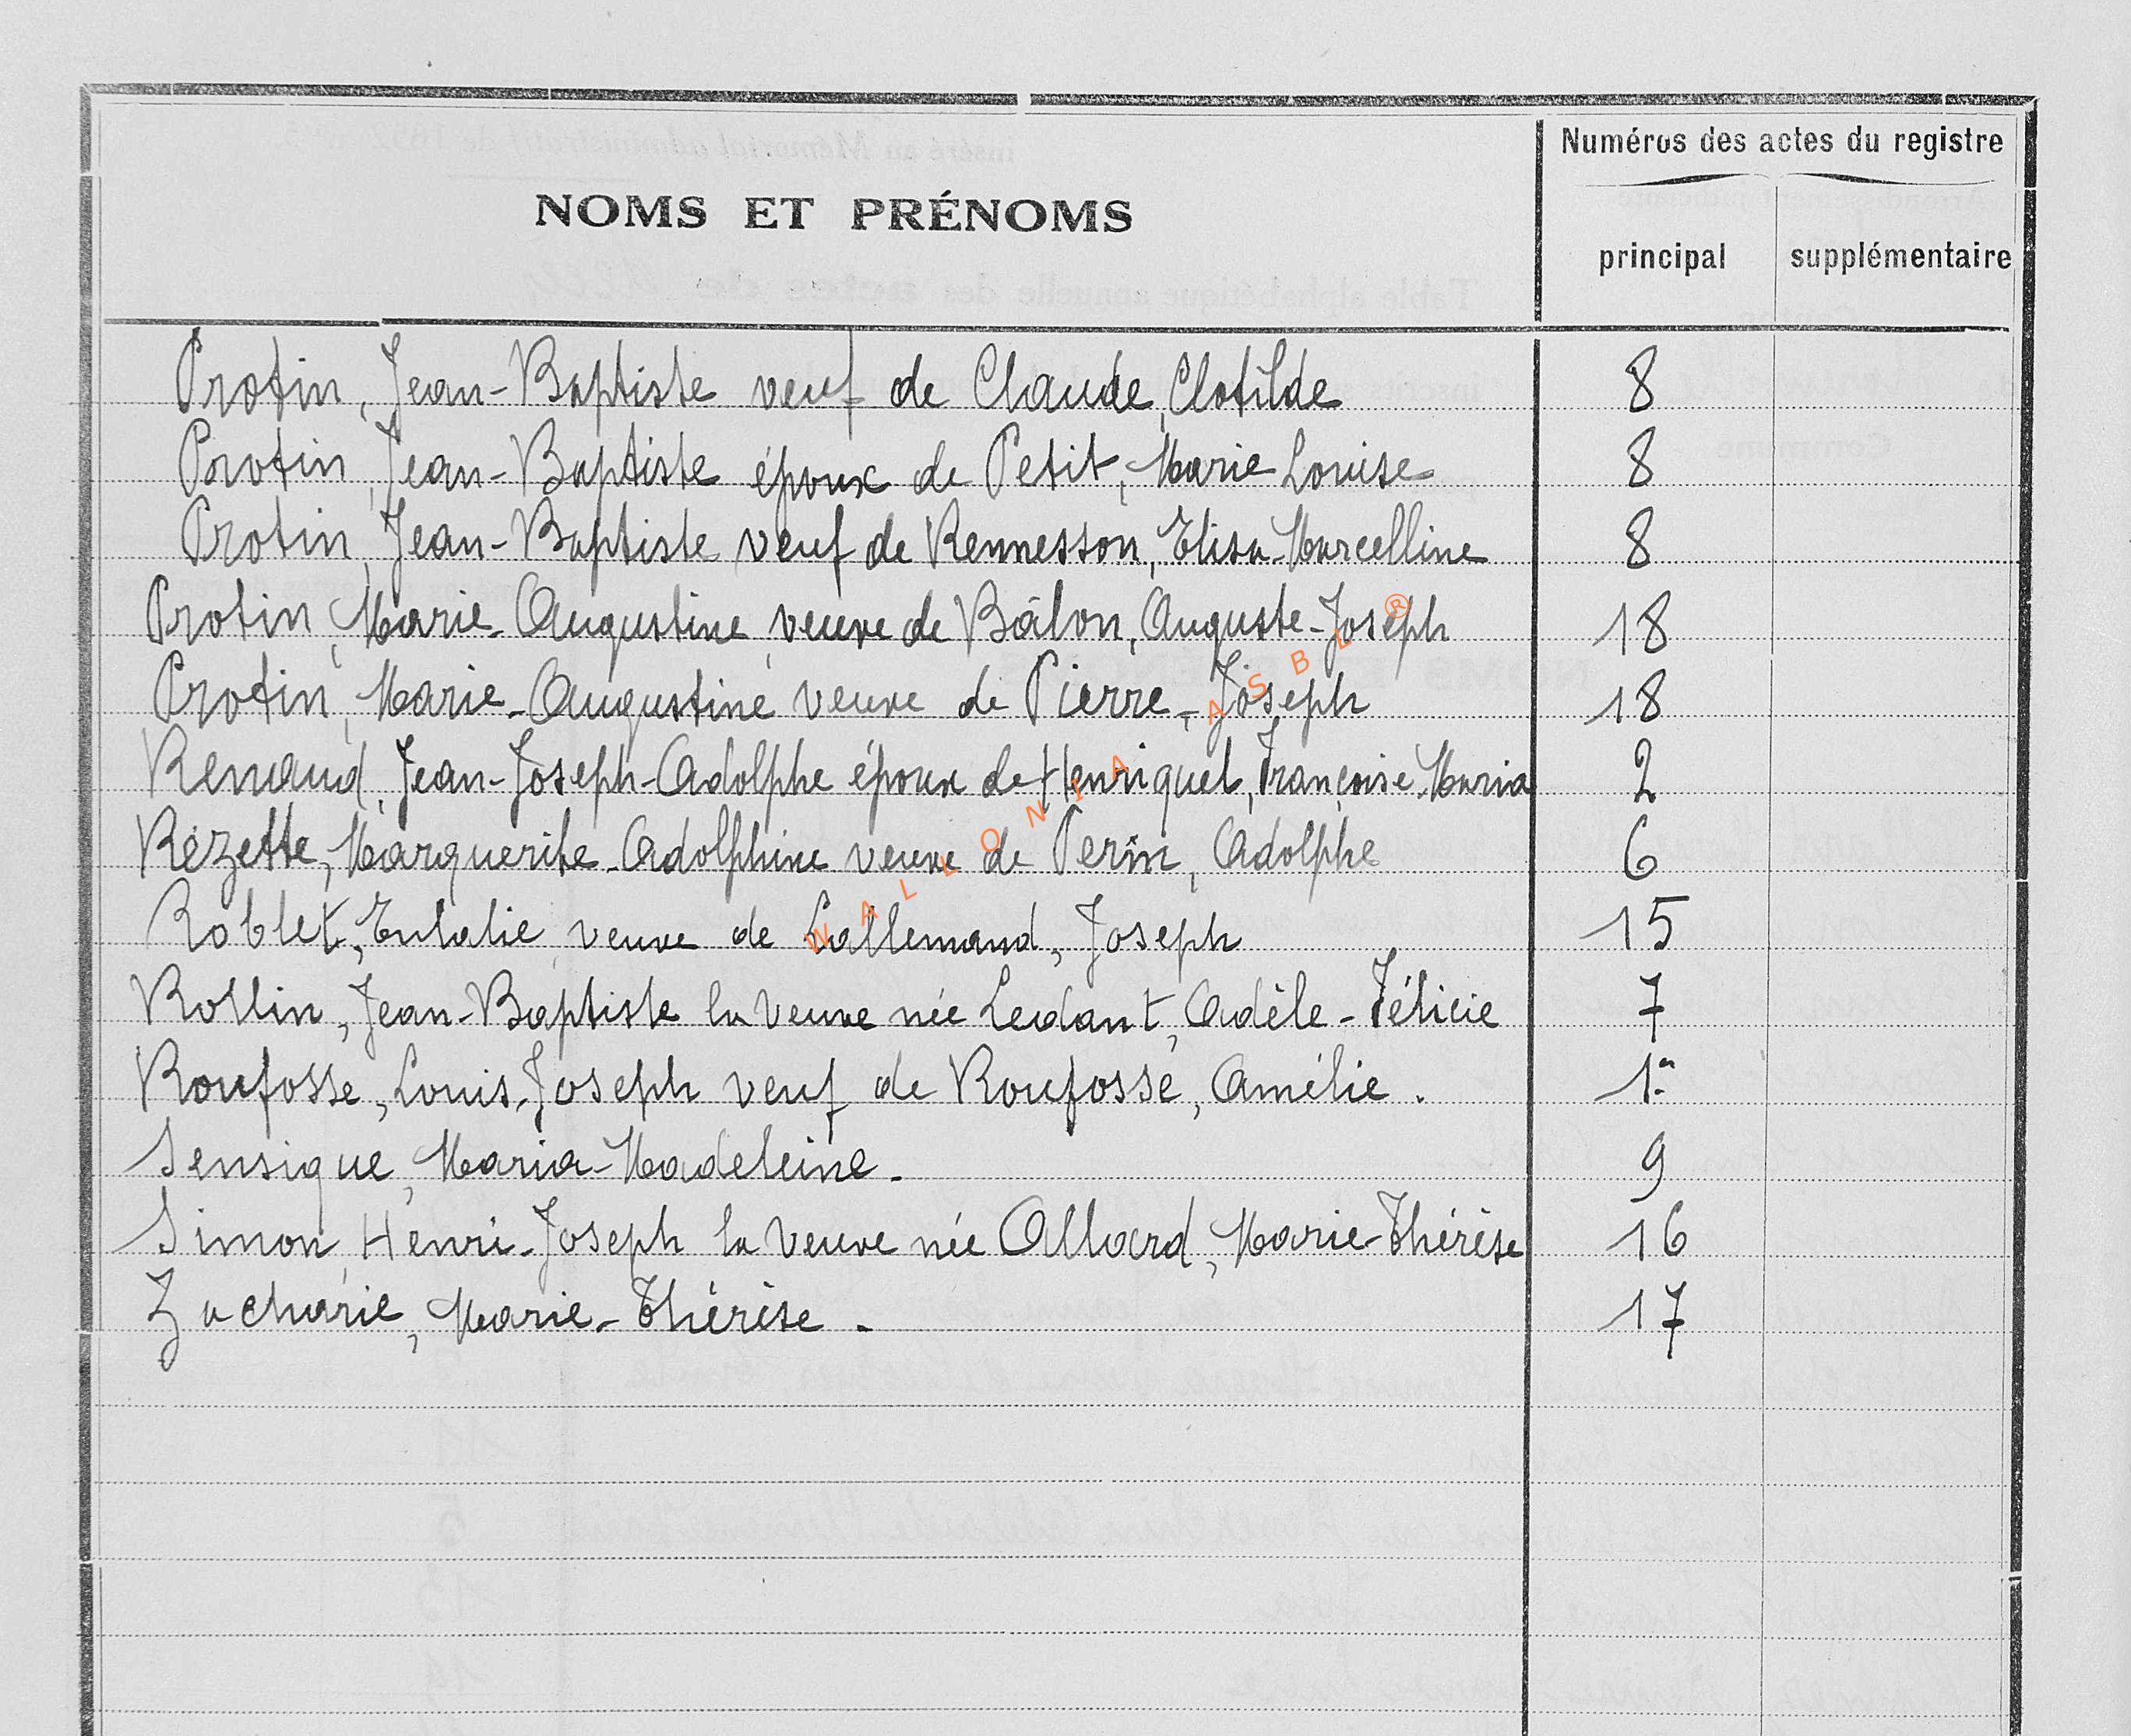 Numéros des actes du registre
NOMS ET PRÉNOMS
principal supplémentaire
Protin, Jean-Baptiste veuf de Claude, Clotilde 8
Protin, Jean-Baptiste époux de Petit, Marie Louise 8
Protin, Jean-Baptiste veuf de Rennesson, Elisa-Marcelline 8
Protin, Marie-Augustine, veuve de Bâlon, Auguste-Joseph 18
Protin, Marie-Augustine veuve de Pierre, Joseph 18
Renaud, Jean-Joseph-Adolphe époux de Henriquet, Françoise Maria 2
Rézette, Marguerite-Adolphine veuve de Perin, Adolphe 6
Roblet, Eulalie, veuve de Lallemand, Joseph 15
Rollin, Jean-Baptiste la veuve née Ledant, Adèle-Félicie 7
Roufosse, Louis-Joseph veuf de Roufosse, Amélie. 1
Sensique, Maria-Madeleine. 9
Simon, Henri-Joseph la veuve née Allard, Marie-Thérèse 16
Zacharie, Marie-Thérèse. 17
WALLONIA ASBL ®